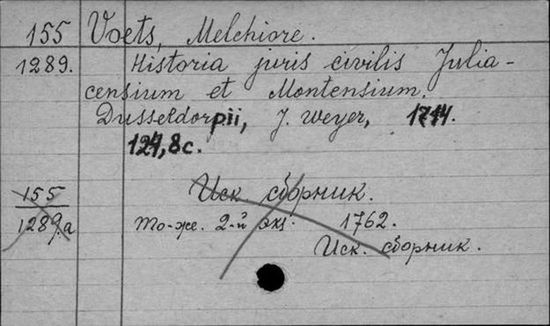 155 Voets, Melchiore.
1289. Historia juris civilis Julia-
censium et Montensium.
Dusseldorpii, J. Weyer, 1714.
124, 8 с.
155 Иск. сборник.
1289.a То-же. 2-й экз. 1762.
Иск. сборник.